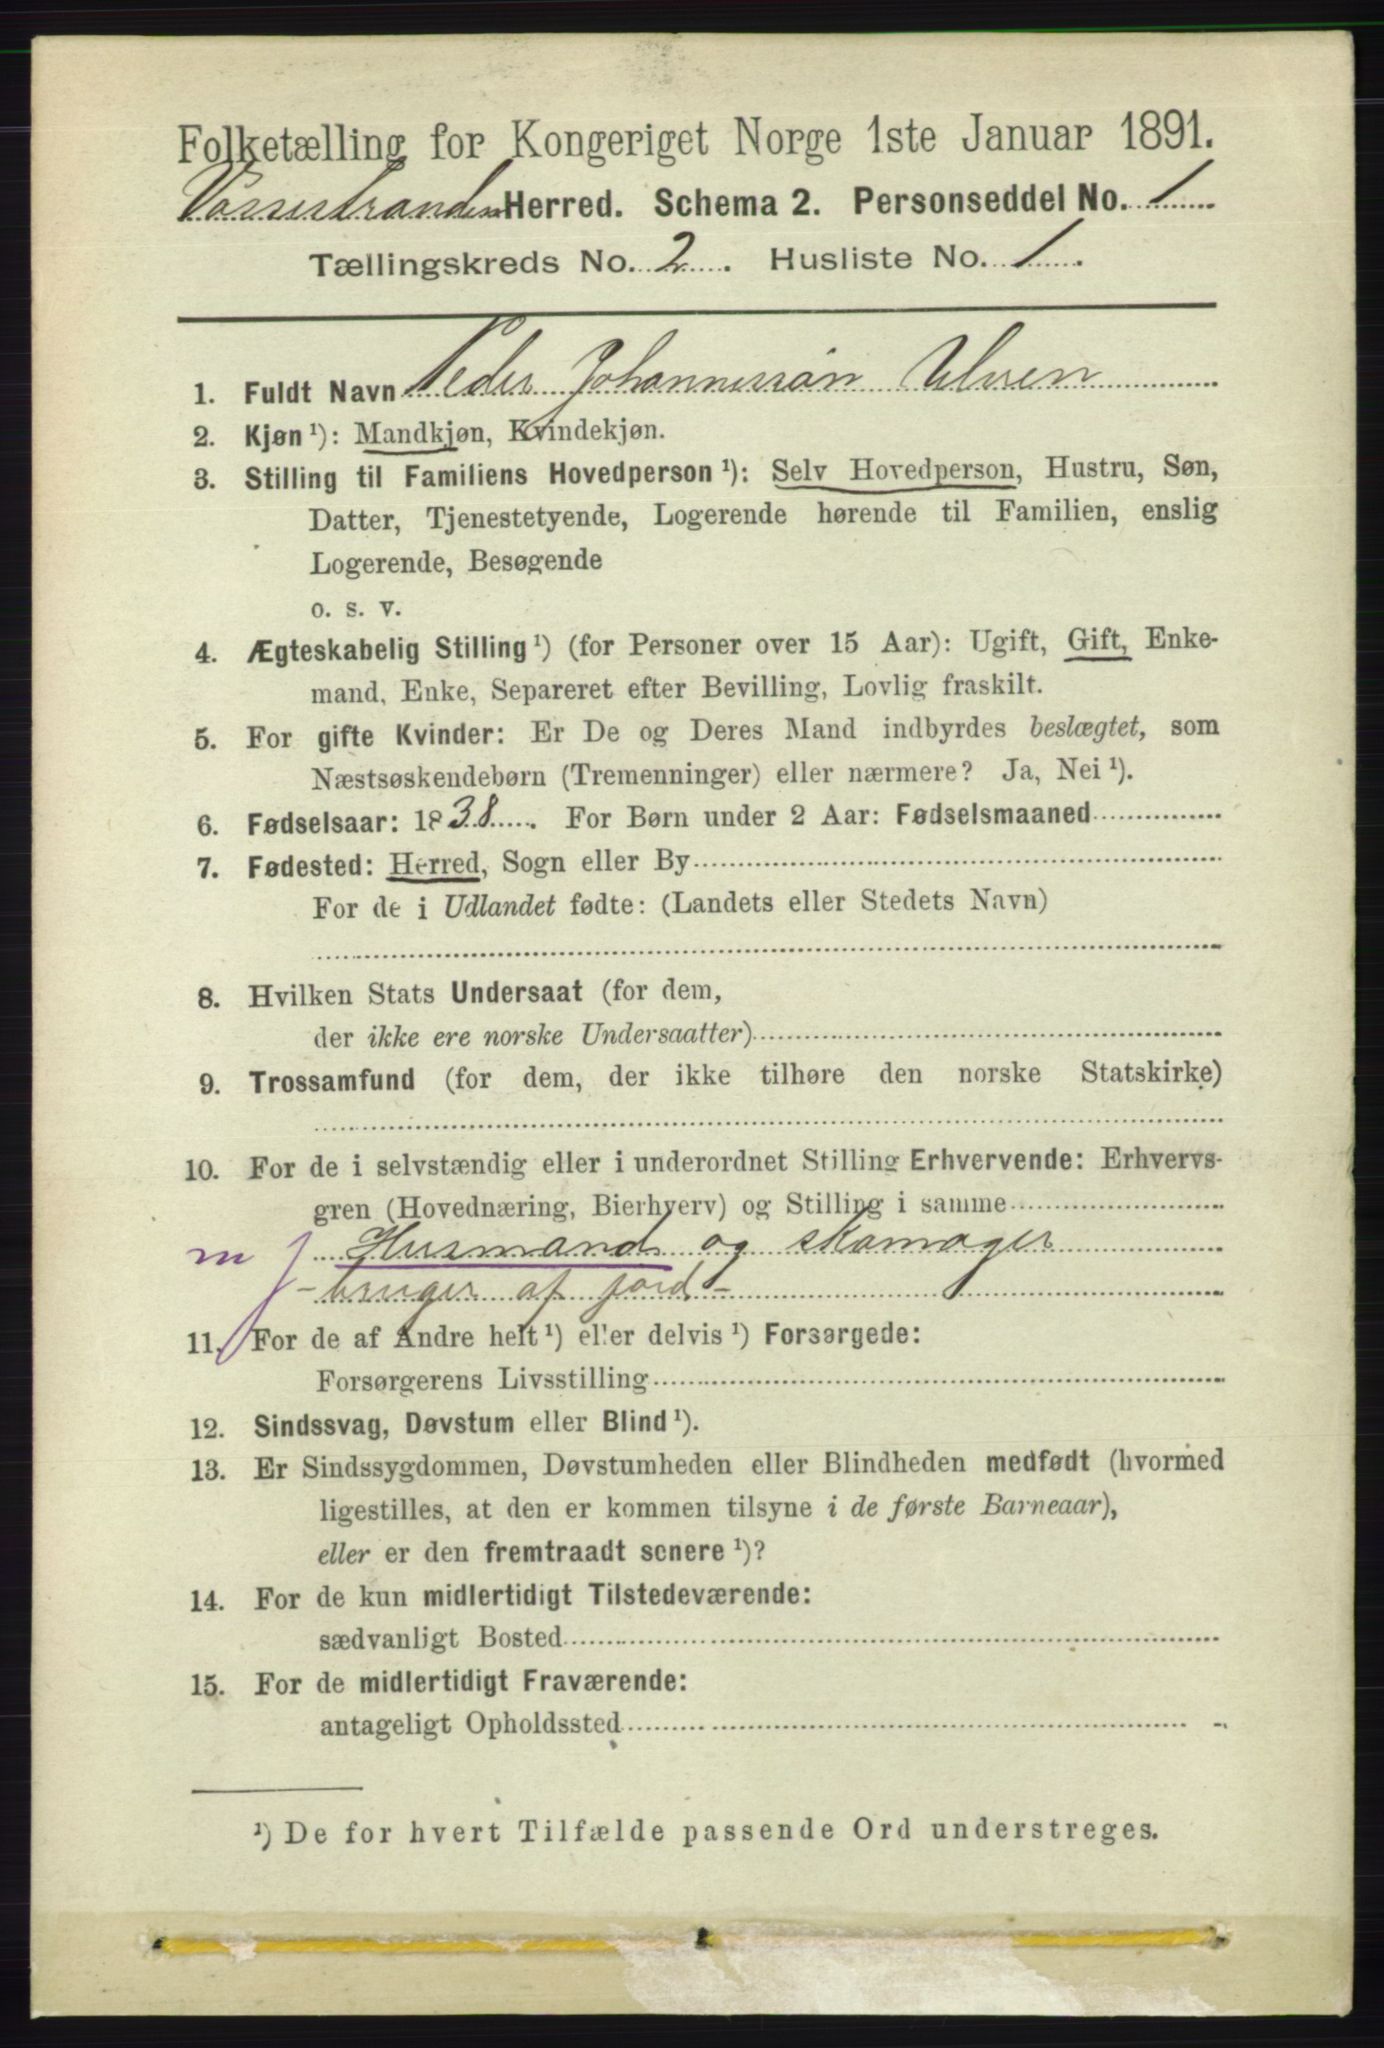 Folketælling for Kongeriget Norge 1ste Januar 1891.
Vossestranden Herred. Schema 2. Personseddel No. 1
Tællingskreds No. 2. Husliste No. 1.
1. Fuldt Navn Peder Johannessøn
2. Kjøn ¹): Mandkjøn, Kvindekjøn.
3. Stilling til Familiens Hovedperson ¹): Selv Hovedperson, Hustru, Søn,
Datter, Tjenestetyende, Logerende hørende til Familien, enslig
Logerende, Besøgende
o. s. v.
4. Ægteskabelig Stilling ¹) (for Personer over 15 Aar): Ugift, Gift, Enke-
mand, Enke, Separeret efter Bevilling, Lovlig fraskilt.
5. For gifte Kvinder: Er De og Deres Mand indbyrdes beslægtet, som
Næstsøskendebørn (Tremenninger) eller nærmere? Ja, Nei ¹).
6. Fødselsaar: 1838. For Børn under 2 Aar: Fødselsmaaned
7. Fødested: Herred, Sogn eller By
For de i Udlandet fødte: (Landets eller Stedets Navn)
8. Hvilken Stats Undersaat (for dem,
der ikke ere norske Undersaatter)
9. Trossamfund (for dem, der ikke tilhøre den norske Statskirke)
10. For de i selvstændig eller i underordnet Stilling Erhvervende: Erhvervs-
gren (Hovednæring, Bierhverv) og Stilling i samme
m j Husmand og skomager
- bruger af jord -
11. For de af Andre helt ¹) eller delvis ¹) Forsørgede:
Forsørgerens Livsstilling
12. Sindssvag, Døvstum eller Blind ¹).
13. Er Sindssygdommen, Døvstumheden eller Blindheden medfødt (hvormed
ligestilles, at den er kommen tilsyne i de første Barneaar),
eller er den fremtraadt senere ¹)?
14. For de kun midlertidigt Tilstedeværende:
sædvanligt Bosted
15. For de midlertidigt Fraværende:
antageligt Opholdssted
¹) De for hvert Tilfælde passende Ord understreges.